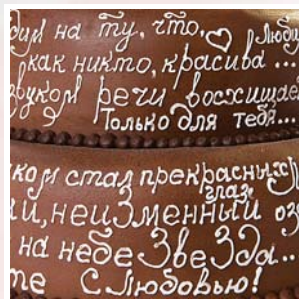 на ту, что, Люби
как никто, красива ...
звуком речи восхищае
Только для тебя...
ком стал прекрасных
глаз,
неизменный оз
на небе Звезда...
те С Любовью!